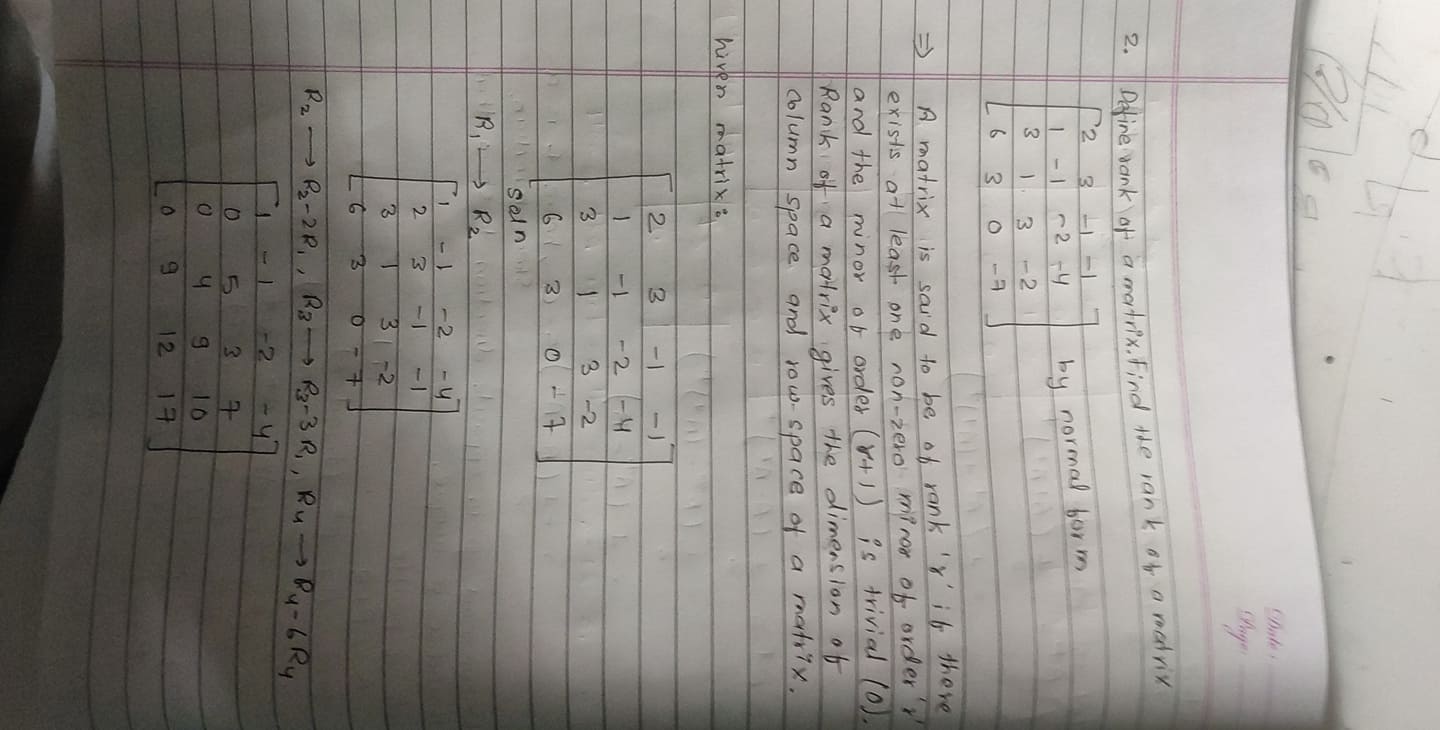 Date:
Page:
2. Define rank of a matrix. Find the rank of a matrix
2 3 -1 -1
1 -1 -2 -4
by normal form
3 1 3 -2
6 3 0 -7
⇒ A matrix is said to be of rank 'r' if there
exists at least one non-zero minor of order 'r'
and the minor of order (r+1) is trivial (0).
Rank of a matrix gives the dimension of
column space and row-space of a matrix.
Given matrix:
2 3 -1 -1
1 -1 -2 -4
3 1 3 -2
6 3 0 -7
soln
R₁ → R₂
1 -1 -2 -4
2 3 -1 -1
3 1 3 -2
6 3 0 -7
R₂ → R₂-2R₁, R₃ → R₃-3R₁, R₄ → R₄-6R₄
1 -1 -2 -4
0 5 3 7
0 4 9 10
0 9 12 17